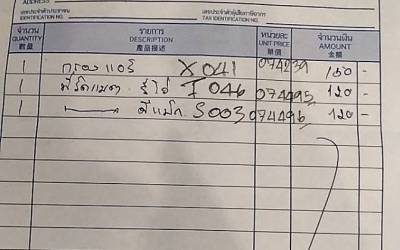 ADDRESS
เลขประจำตัวประชาชน
IDENTIFICATION NO.
เลขประจำตัวผู้เสียภาษีอากร
TAX IDENTIFICATION NO.
จำนวน รายการ หน่วยละ จำนวนเงิน
QUANTITY DESCRIPTION UNIT PRICE AMOUNT
數量 產品描述 單價 金額
1 กรองแอร์ X041 150 -
1 I046 074495 120 -
1 S003 074496 120 -